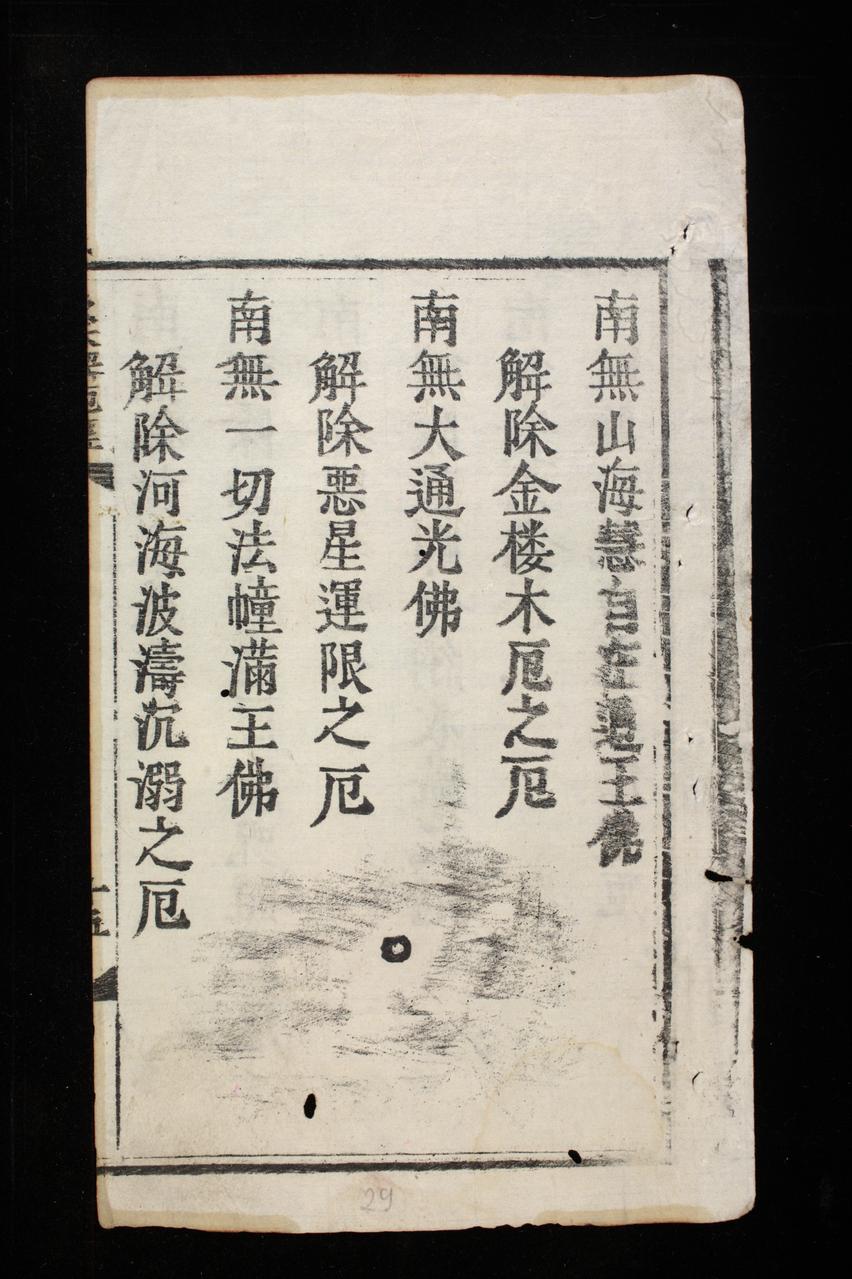 南無山海慧自在通王佛
解除金楼木厄之厄
南無大通光佛
解除惡星運限之厄
南無一切法幢滿王佛
解除河海波濤沉溺之厄
29